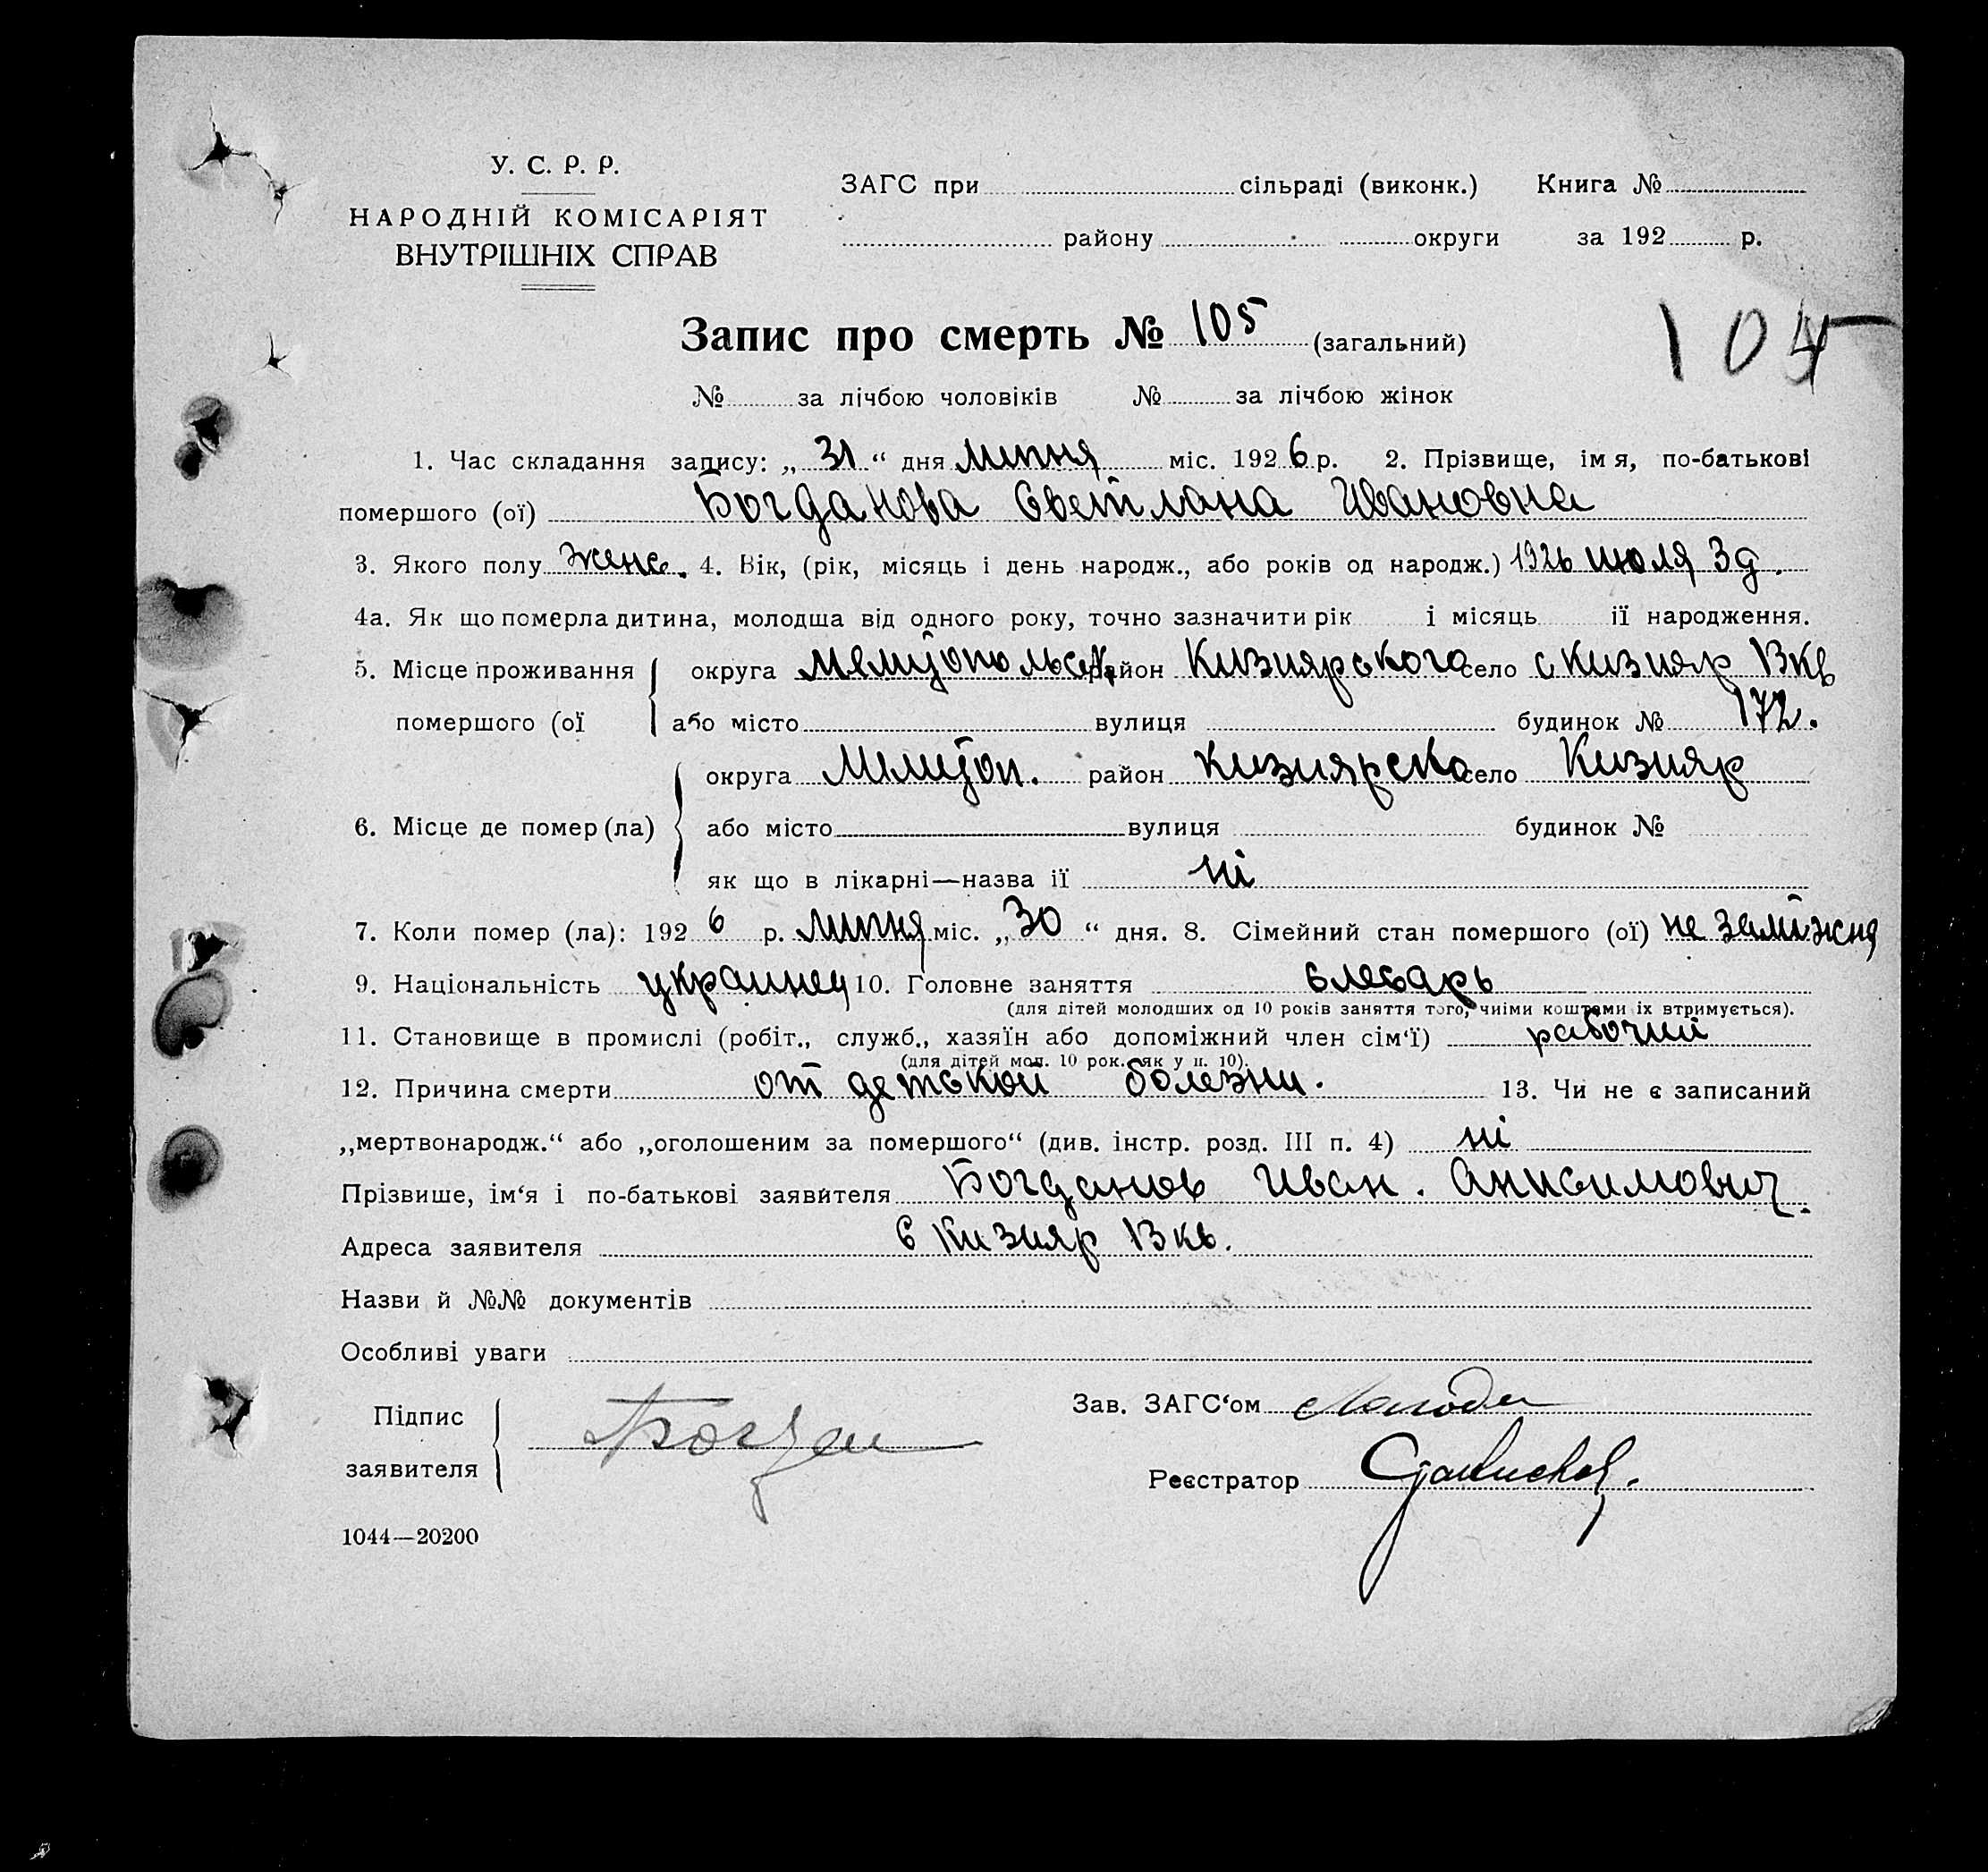 У. С. Р. Р.
НАРОДНІЙ КОМІСАРІЯТ
ВНУТРІШНІХ СПРАВ
ЗАГС при сільраді (виконк.) Книга №
району округи за 192 р.
Запис про смерть № 105 (загальний)
105
№ за лічбою чоловіків № за лічбою жінок
1. Час складання запису: „31“ дня липня міс. 1926 р. 2. Прізвище, імя, по-батькові
помершого (ої) Богданова Светлана Ивановна
3. Якого полу женс. 4. Вік, (рік, місяць і день народж., або років од народж.) 1926 июля 3д.
4а. Як що померла дитина, молодша від одного року, точно зазначити рік і місяць її народження.
5. Місце проживання округа Мелитопольск район Кизиярського село с Кизияр 13кв
помершого (ої або місто вулиця будинок № 172.
округа Мелитоп. район Кизиярско село Кизияр
6. Місце де помер (ла) або місто вулиця будинок №
як що в лікарні—назва її ні
7. Коли помер (ла): 1926 р. липня міс. „30“ дня. 8. Сімейний стан помершого (ої) не заміжня
9. Національність украинец 10. Головне заняття слесарь
(для дітей молодших од 10 років заняття того, чиїми коштами їх втримується).
11. Становище в промислі (робіт., служб., хазяїн або допоміжний член сім‘ї) рабочий
(для дітей мол. 10 рок. як у п. 10).
12. Причина смерти от детской болезни. 13. Чи не є записаний
„мертвонародж.“ або „оголошеним за помершого“ (див. інстр. розд. III п. 4) ні
Прізвише, ім‘я і по-батькові заявителя Богданов Иван. Анисимович.
Адреса заявителя с Кизияр 13 кв.
Назви й №№ документів
Особливі уваги
Підпис
заявителя Богдан
Зав. ЗАГС‘ом
Реєстратор
1044—20200